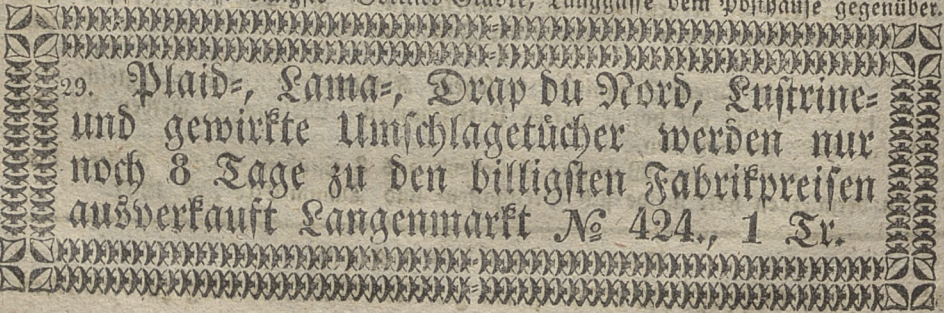 Langgasse dem Posthause gegenüber.
29. Plaid-, Lama-, Drap du Nord, Lustrine-
und gewirkte Umschlagetücher werden nur
noch 8 Tage zu den billigsten Fabrikpreisen
ausverkauft Langenmarkt № 424., 1 Tr.